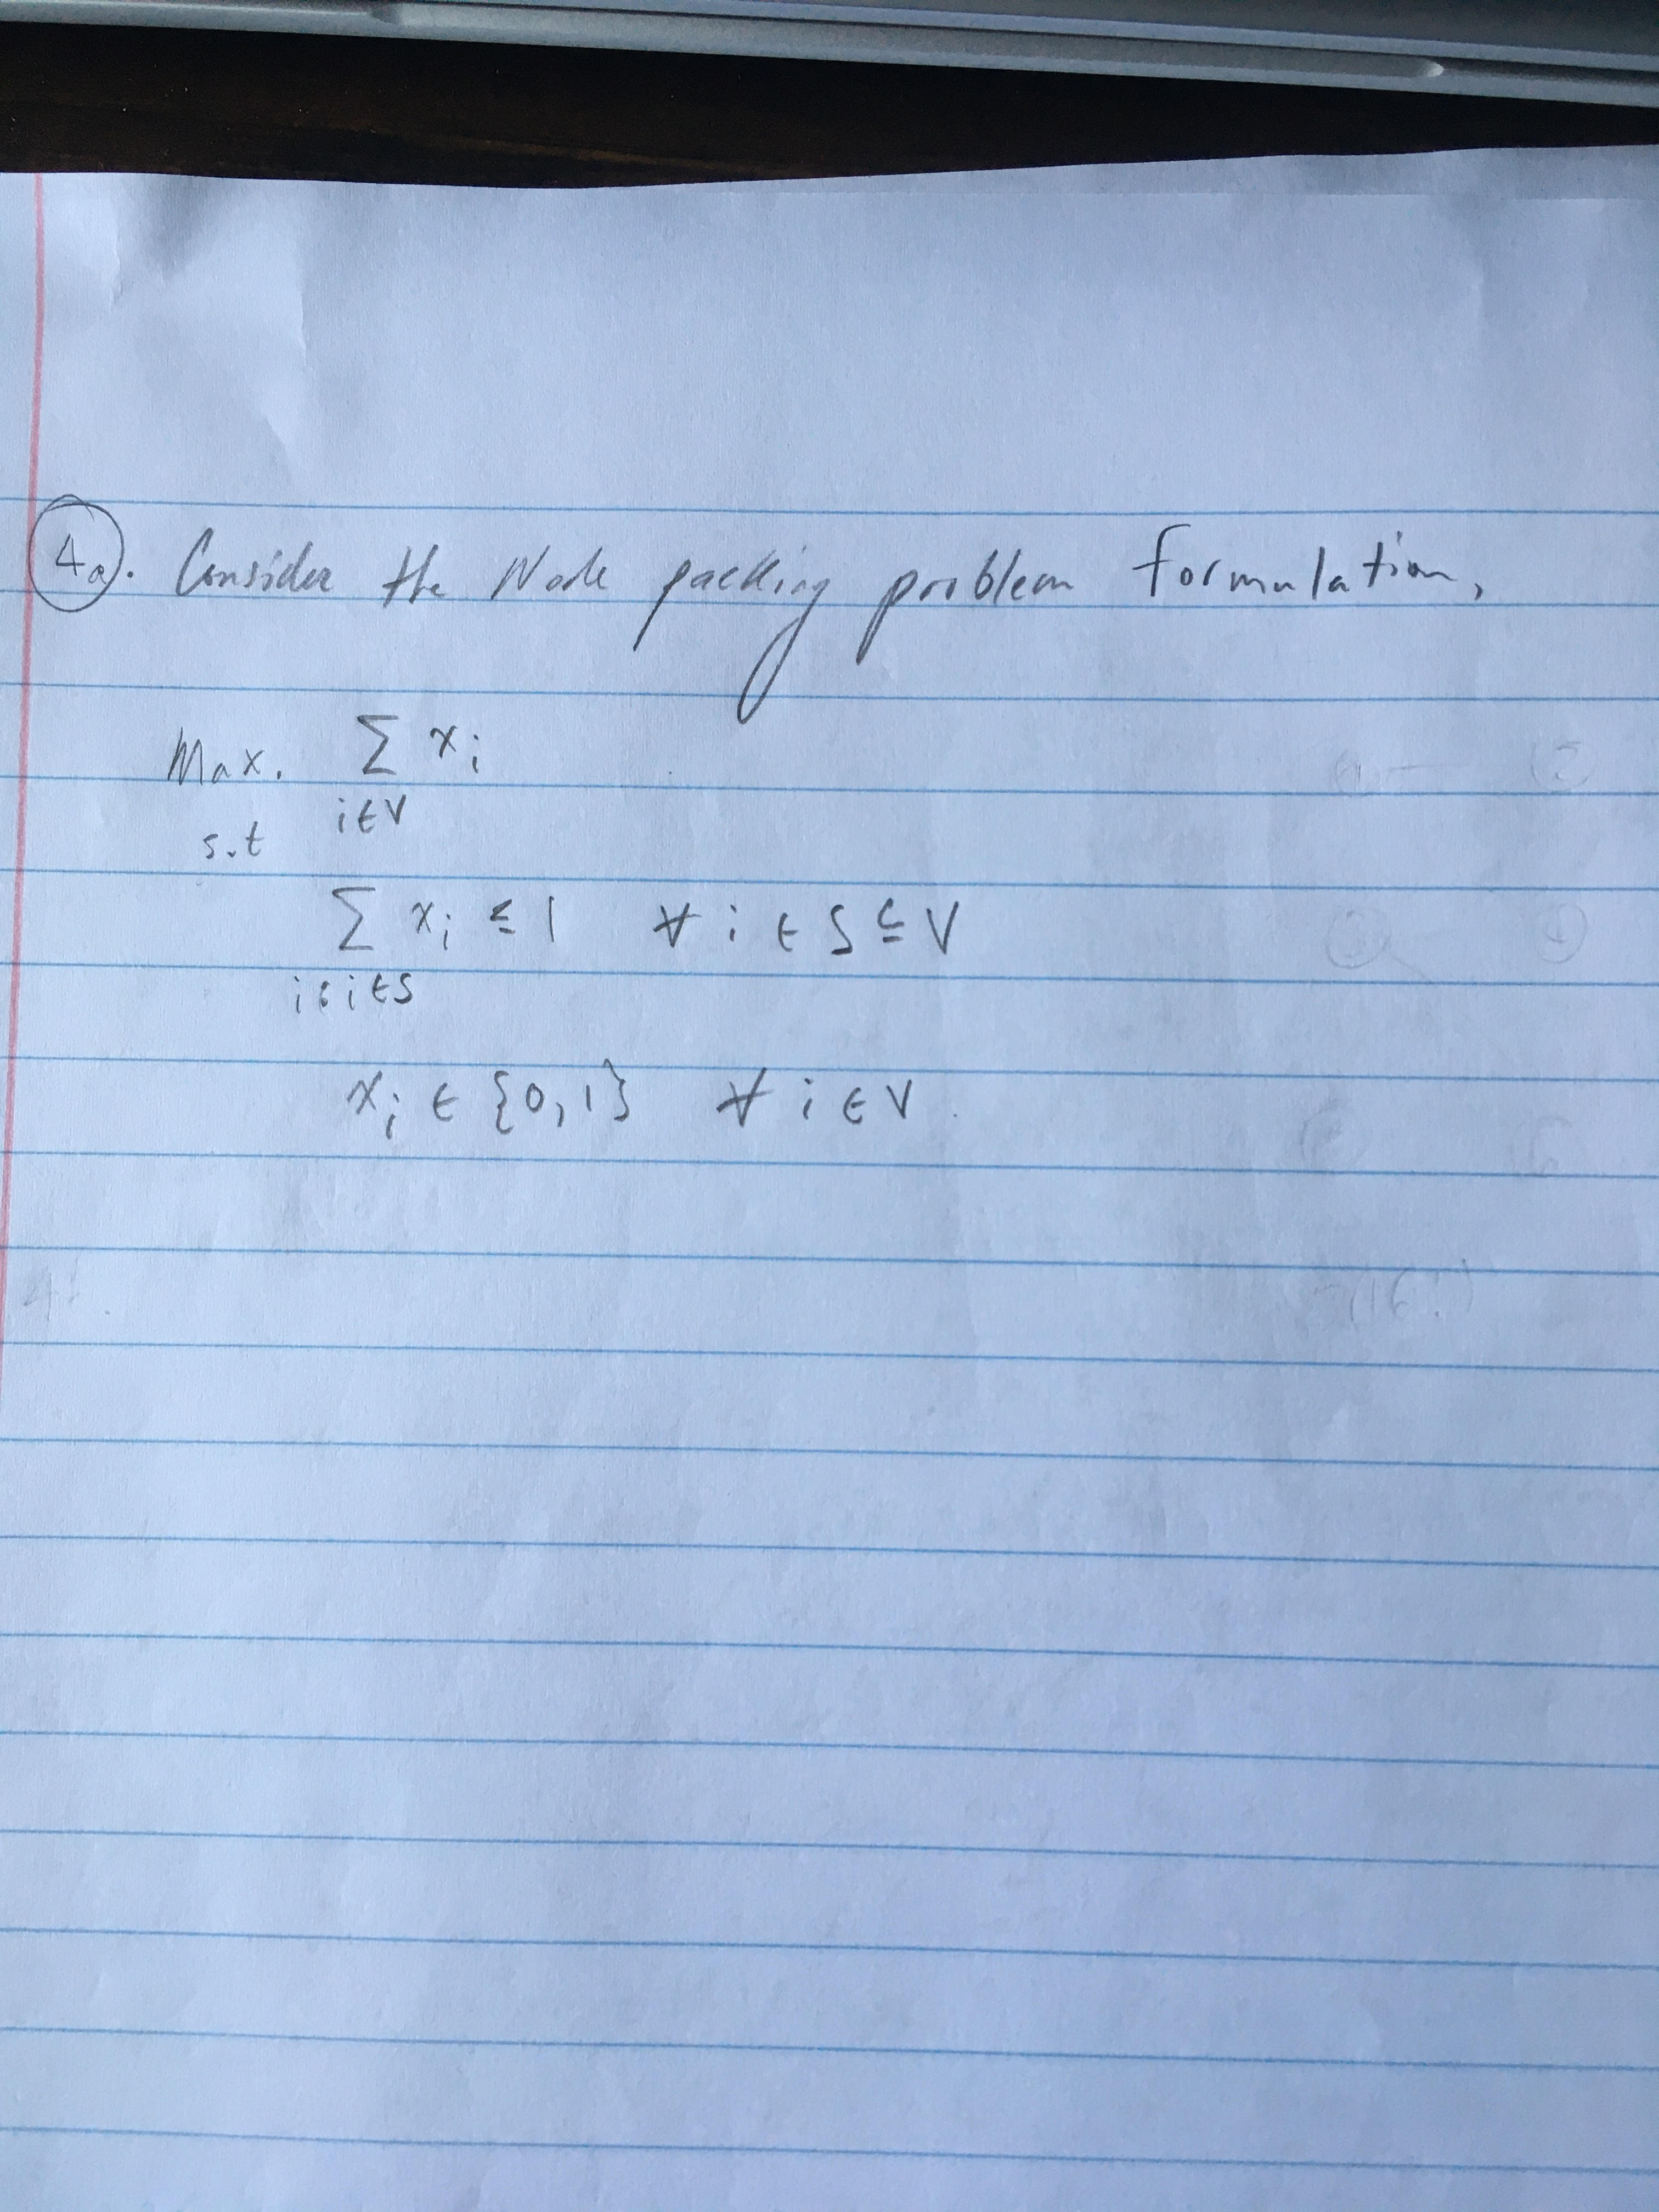 4a. Consider the Node packing problem formulation,
Max. ∑ xi
i∈V
s.t
∑ xi ≤ 1 ∀ i ∈ S ⊆ V
i:i∈S
xi ∈ {0,1} ∀ i ∈ V.